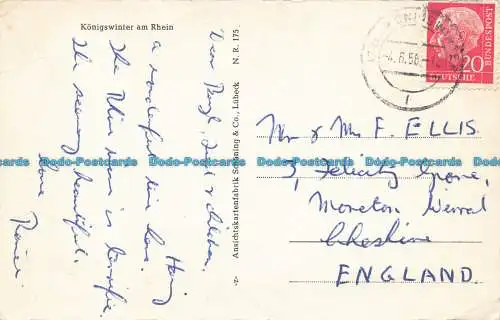 Königswinter am Rhein
Dear
Having
a wonderful time here.
The Rhine is terrific
The scenery beautiful.
Love
Ansichtskartenfabrik Schöning & Co., Lübeck N. R. 175
-4.6.58.-
DEUTSCHE BUNDESPOST
20
Mr & Mrs F. ELLIS.
3, Felicity Grove,
Moreton Wirral
Cheshire
ENGLAND.
Dodo-Postcards Dodo-Postcards Dodo-Postcards Dodo-Postcards